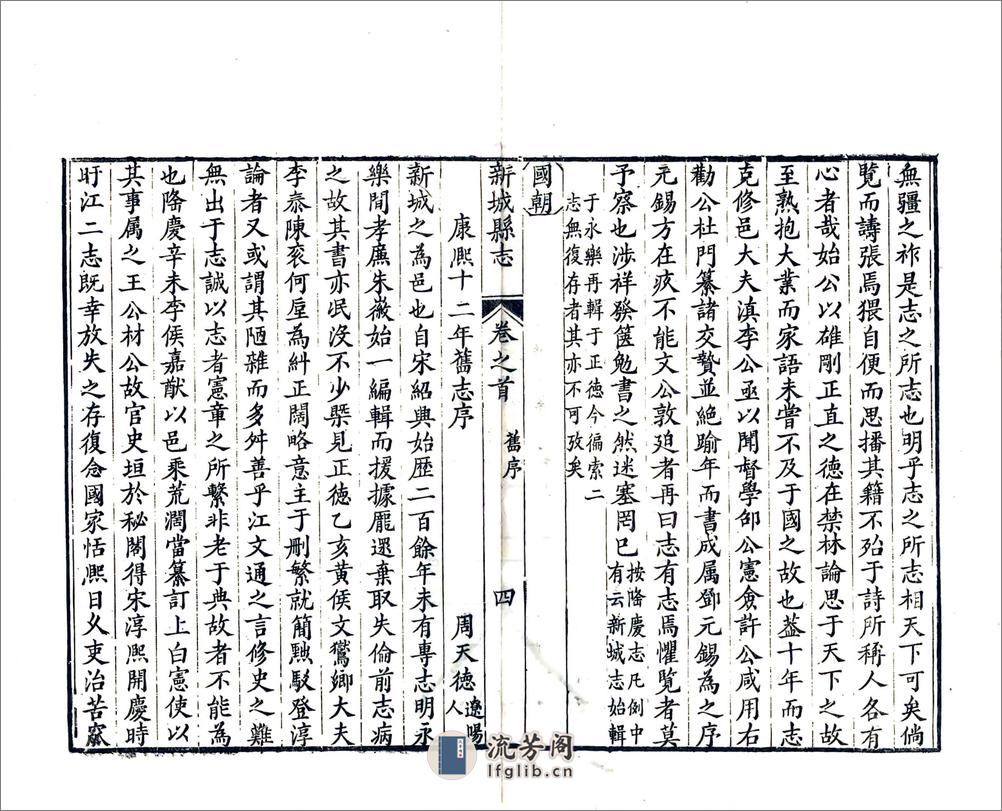 無疆之祚是志之所志也明乎志之所志相天下可矣倘
覽而譸張焉猥自便而思播其籍不殆于詩所稱人各有
心者哉始公以碓剛正直之德在禁林論思于天下之故
至熟抱大業而家語未嘗不及于國之故也葢十年而志
克修邑大夫滇李公亟以聞督學邵公憲僉許公咸用右
勸公杜門纂諸交贄並絕踰年而書成属鄧元錫為之序
元錫方在疚不能文公敦廹者再曰志有志焉懼覽者莫
予察也涉祥發篋勉書之然迷塞罔巳
按隆慶志凡例中
有云新城志始輯
于永樂再輯于正德今徧索二
志無復存者其亦不可攷矣
國朝
新城縣志
卷之首
舊序
四
康熙十二年舊志序
周天德
遼陽
人
新城之為邑也自宋紹興始歴二百餘年未有專志明永
樂間孝廉朱徽始一編輯而援據龎遝棄取失倫前志病
之故其書亦泯沒不少槩見正德乙亥黄侯文鸑鄉大夫
李泰陳衮何垕為糾正闊略意主于刪繁就簡㸃駁登淳
論者又或謂其陋雜而多舛善乎江文通之言修史之難
無出于志誠以志者憲章之所繫非老于典故者不能為
也隆慶辛未李侯嘉猷以邑乘荒濶當纂訂上白憲使以
其事属之王公材公故官史垣於秘閣得宋淳熙開慶時
旴江二志既幸放失之存復念國家恬熙日乆吏治苦窳
流芳阁
lfglib.cn